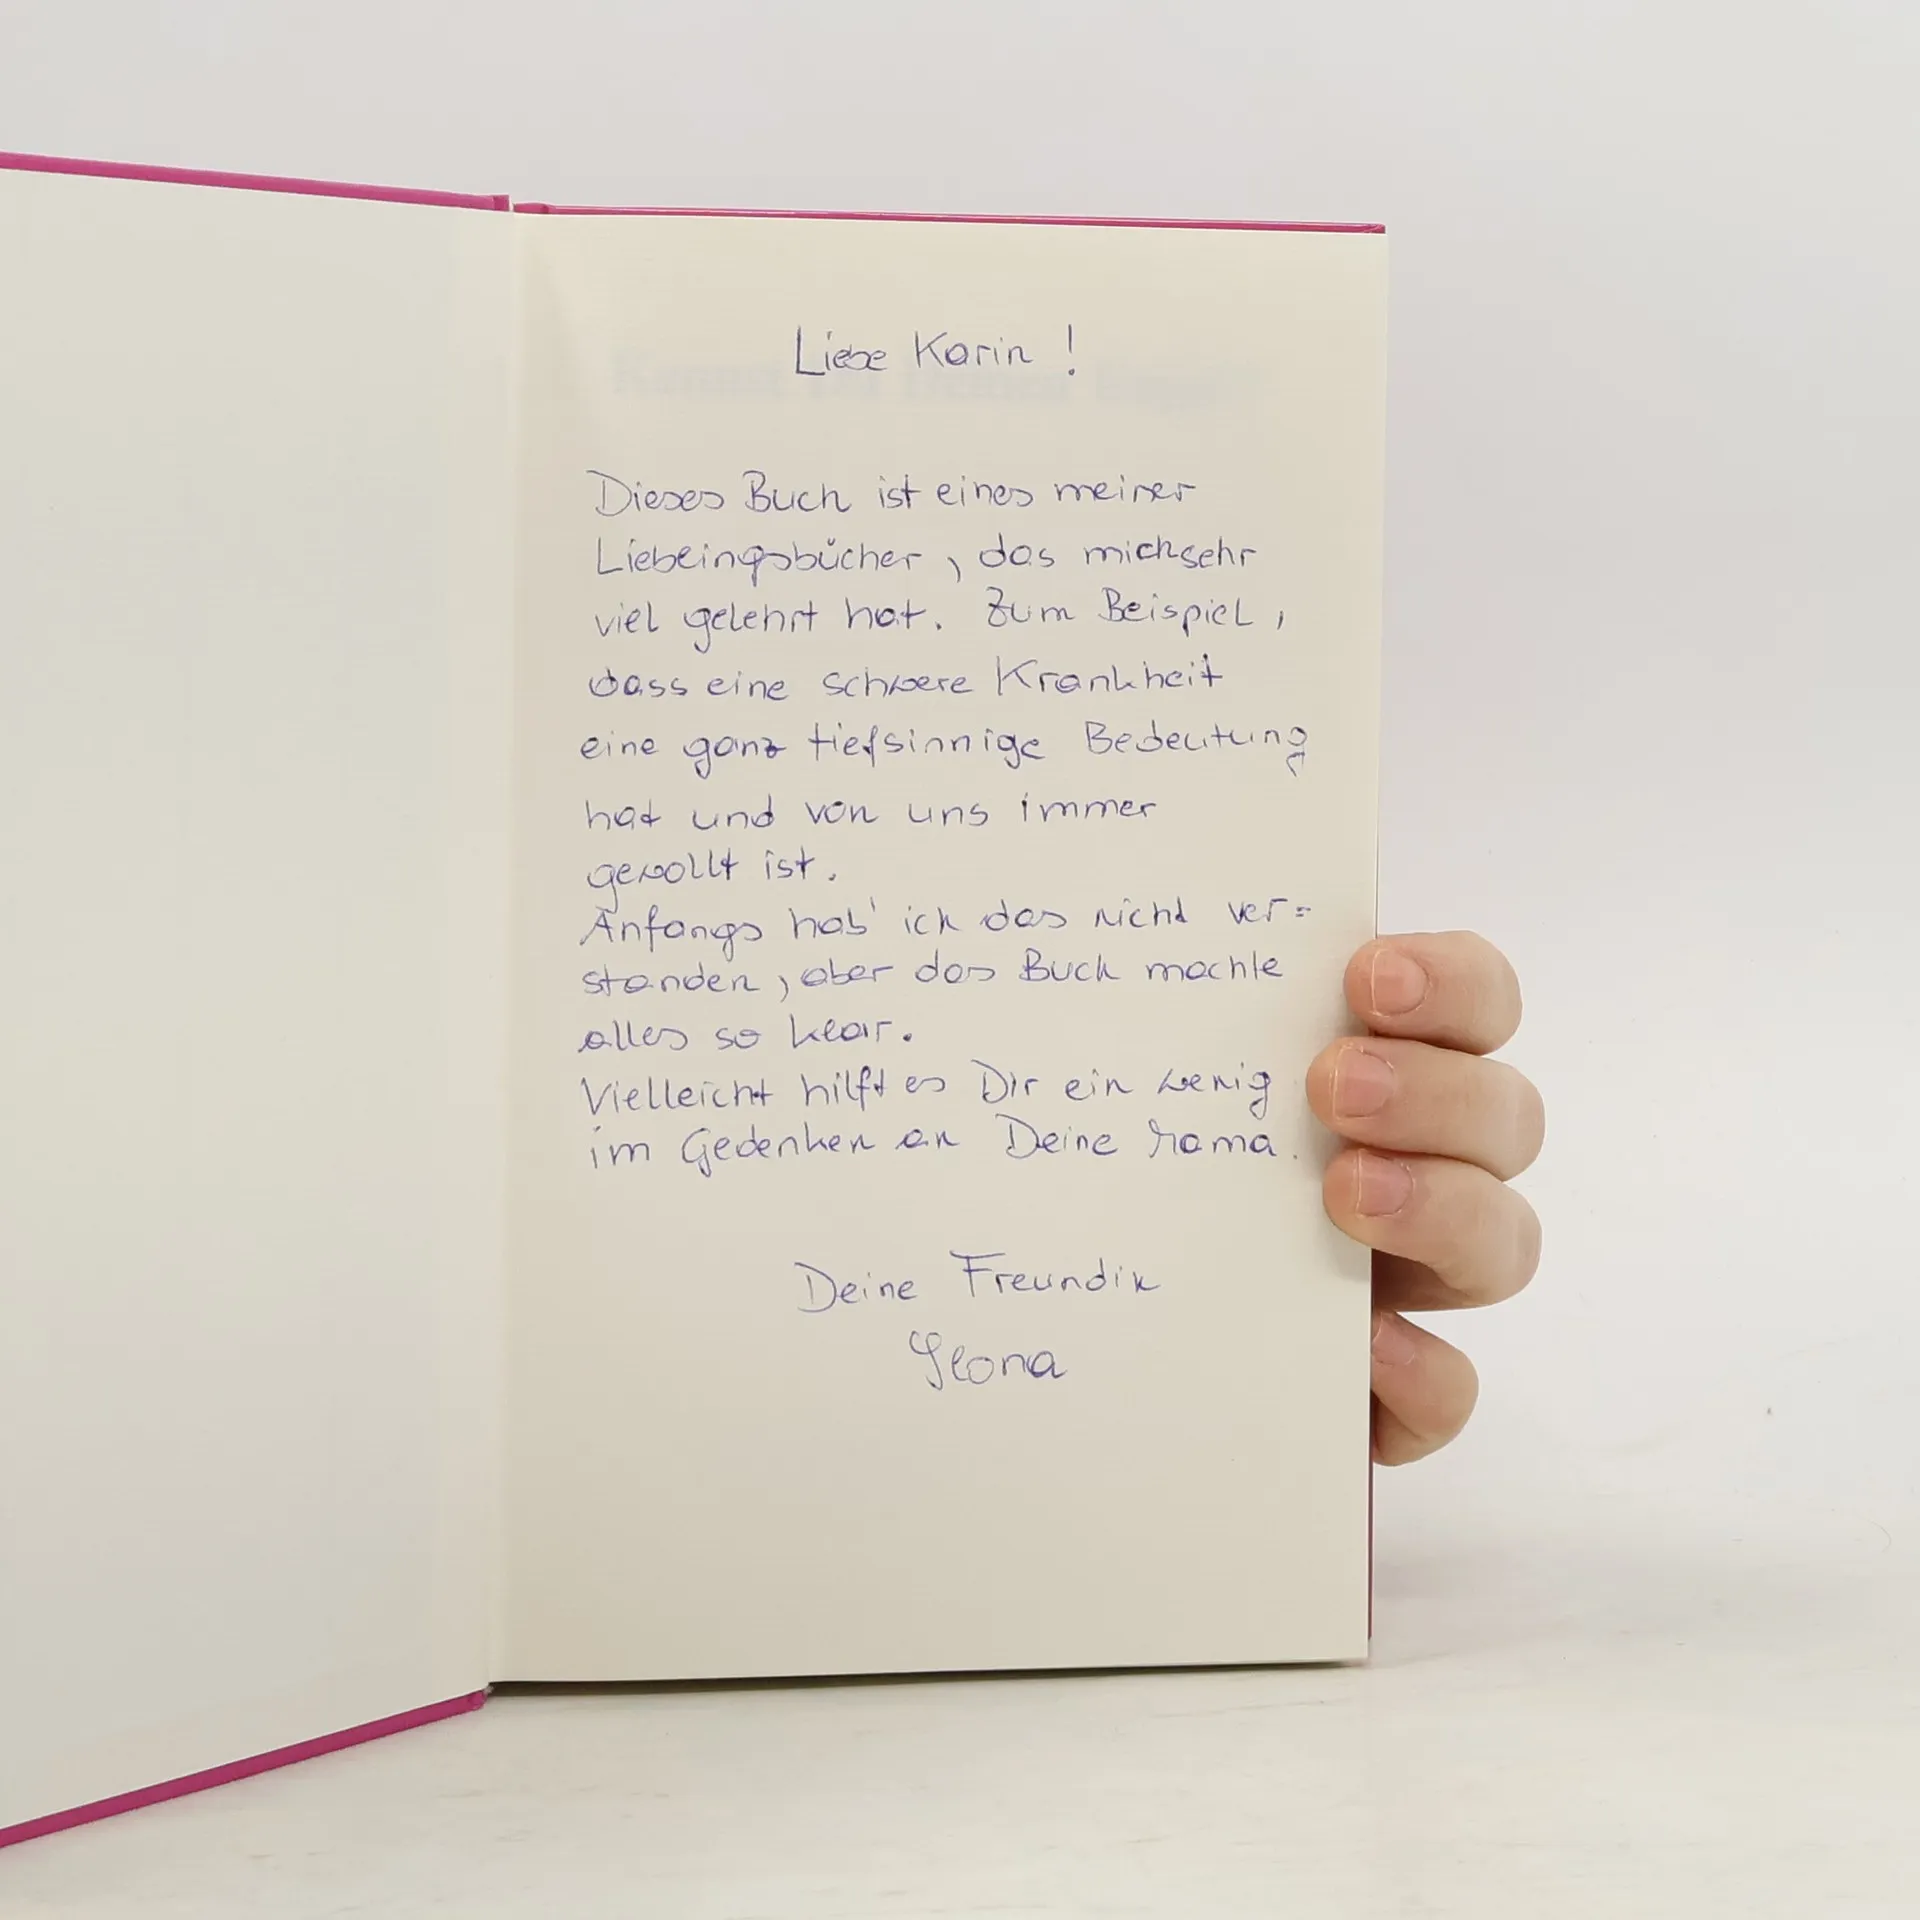 Liebe Karin !
Dieses Buch ist eines meiner
Liebeingsbücher, das mich sehr
viel gelehrt hat. Zum Beispiel,
dass eine schwere Krankheit
eine ganz tiefsinnige Bedeutung
hat und von uns immer
gewollt ist.
Anfangs hab' ich das nicht ver=
standen, aber das Buch machte
alles so klar.
Vielleicht hilft es Dir ein wenig
im Gedenken an Deine Mama.
Deine Freundin
Ilona